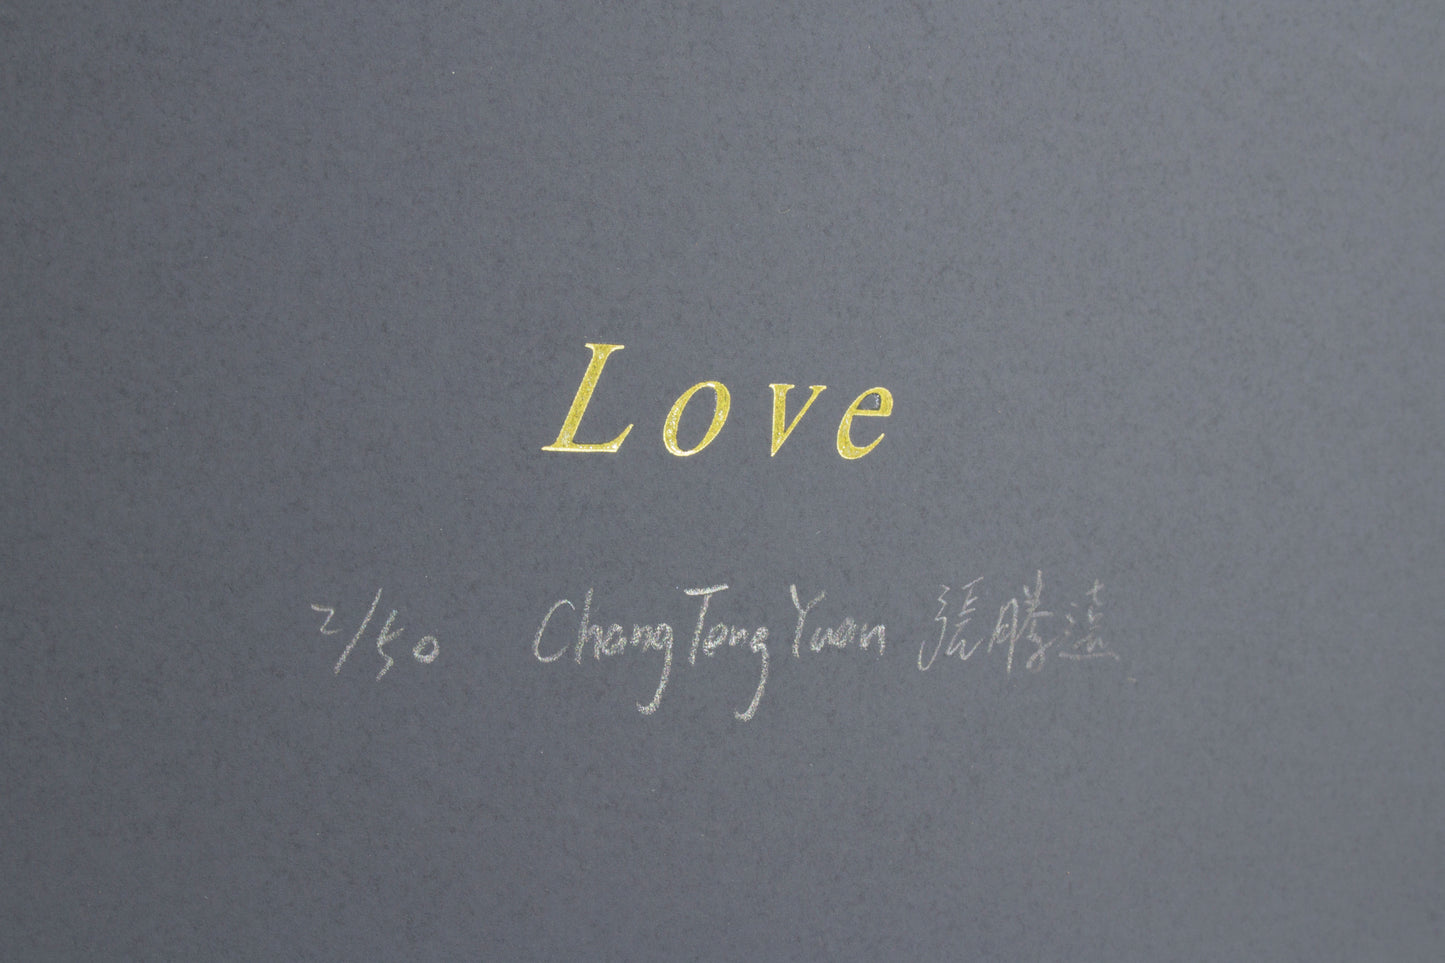 Love
2/50 Chang Teng Yuan 張騰遠